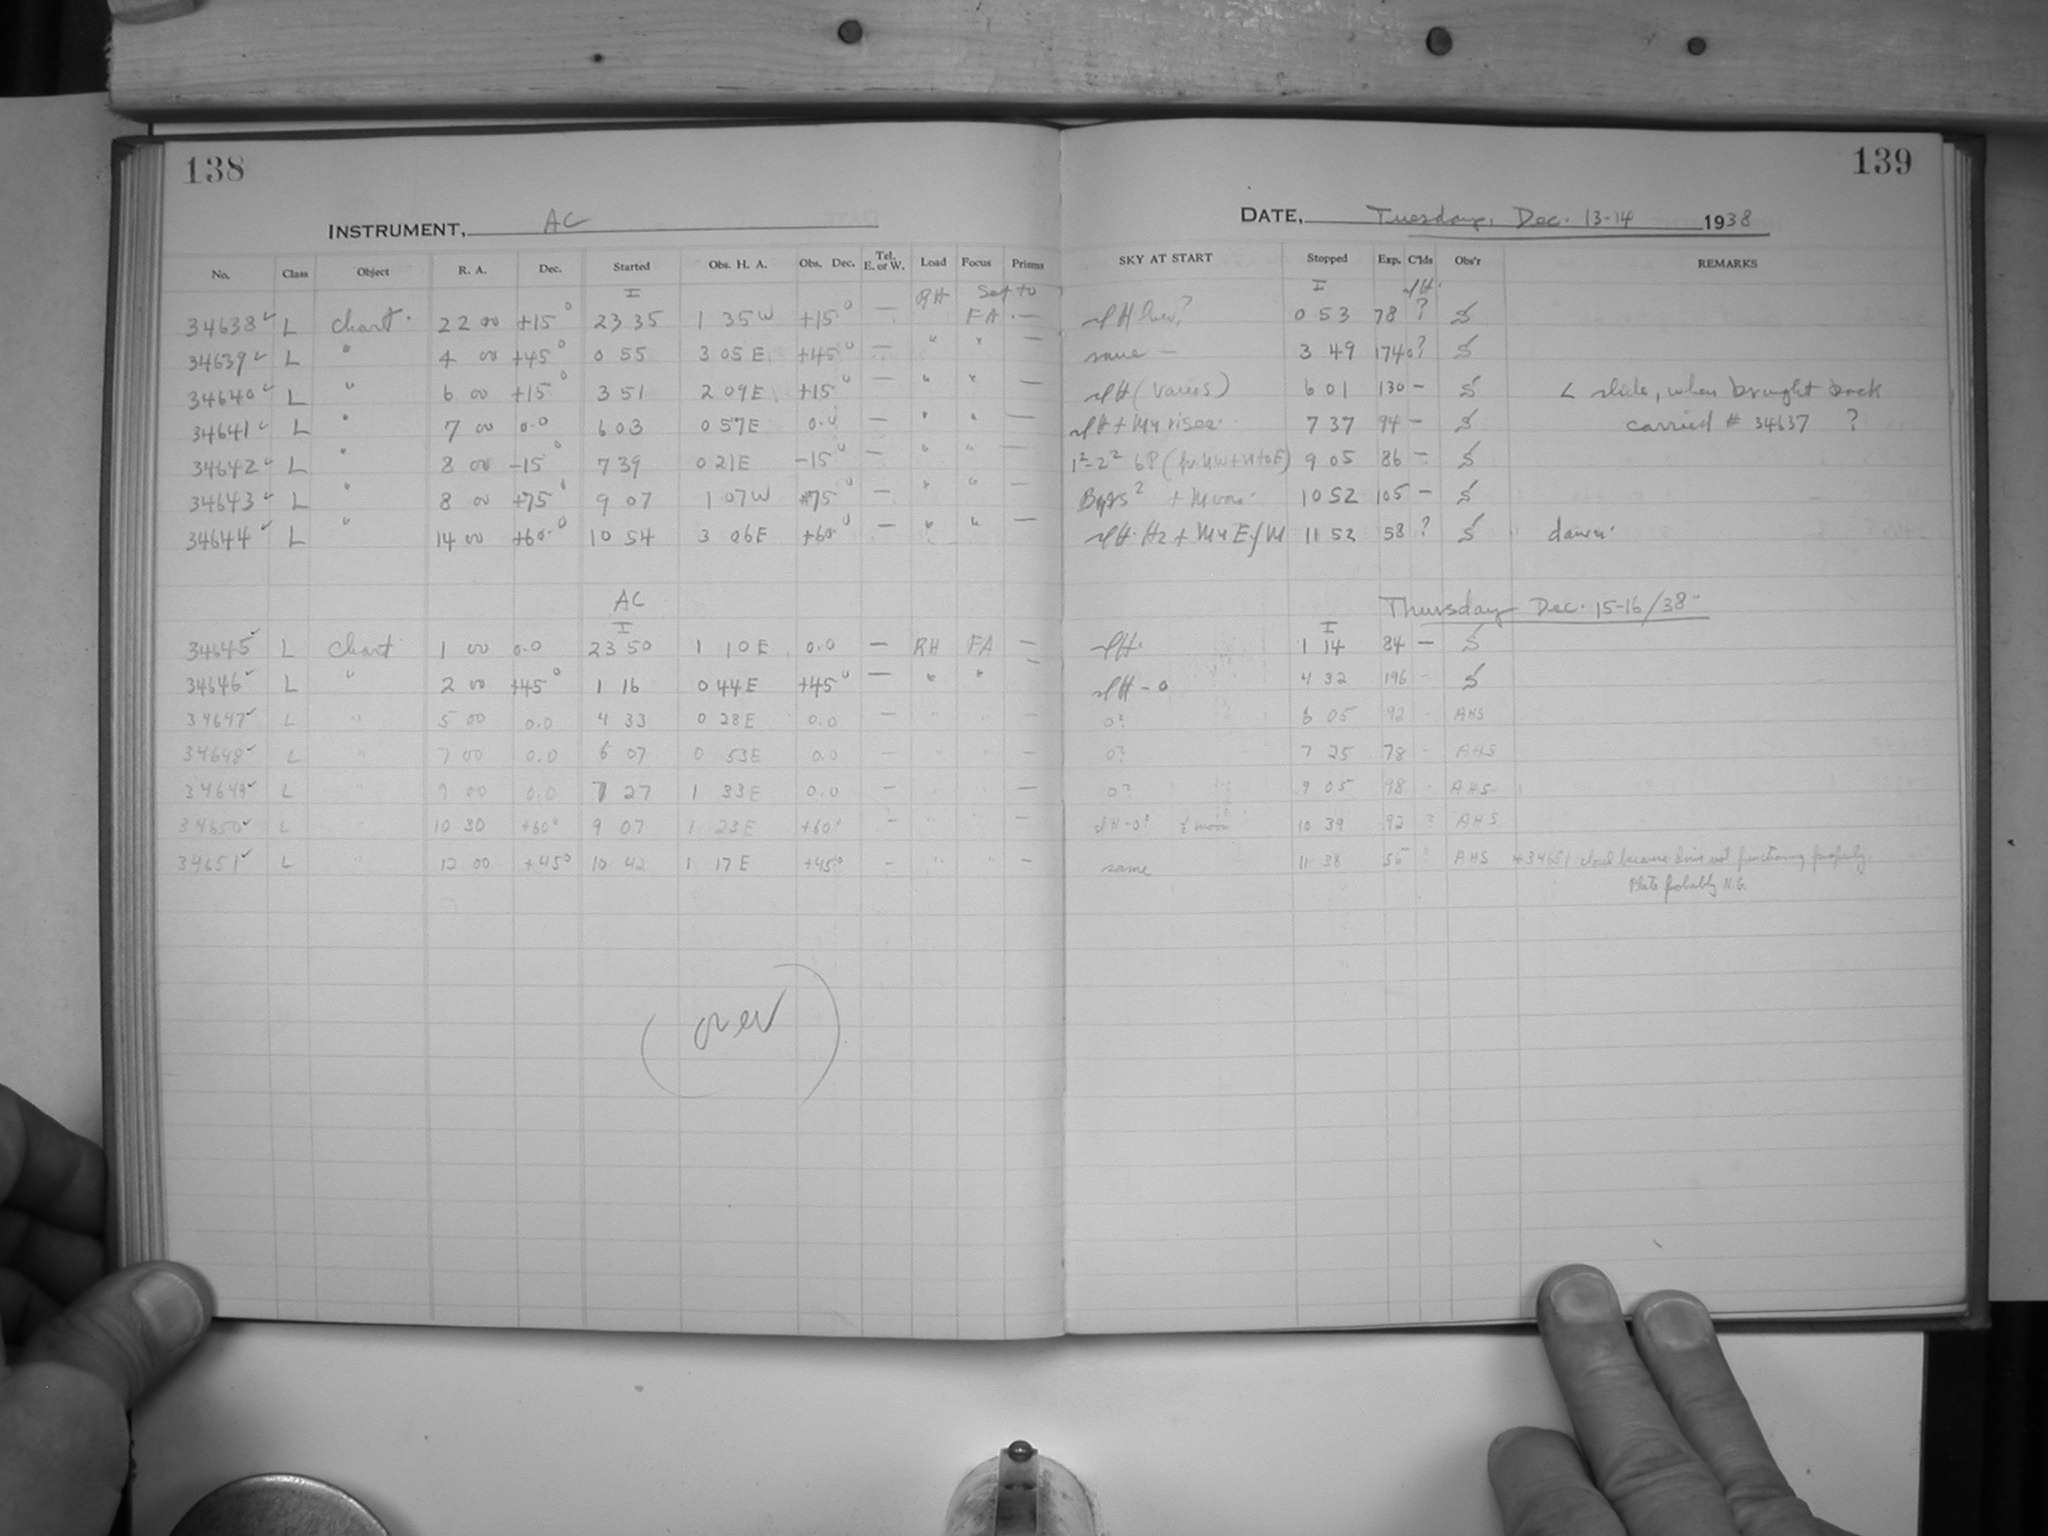 138
139
INSTRUMENT, AC
DATE, Tuesday, Dec. 13-14 1938
No. Class Object R. A. Dec. Started Obs. H. A. Obs. Dec. Tel. E. or W. Load Focus Prisms SKY AT START Stopped Exp. C'lds Obs'r REMARKS
I RH Set to I
34638 ✓ L Chart. 22 00 +15° 23 35 1 35 W +15° — FA. — 0 53 78 ? S
34639 ✓ L " 4 00 +45° 0 55 3 05 E +45° — " " — same — 3 49 174 ? S
34640 ✓ L " 6 00 +15° 3 51 2 09 E +15° — " " — (varies) 6 01 130 — S L slide, when brought back
34641 ✓ L " 7 00 0.0 6 03 0 57 E 0.0 — " " — 7 37 94 — S carried # 34637 ?
34642 ✓ L " 8 00 -15° 7 39 0 21 E -15° — " " — 9 05 86 — S
34643 ✓ L " 8 00 +75° 9 07 1 07 W +75° — " " — + Moon. 10 52 105 — S
34644 ✓ L " 14 00 +60° 10 54 3 06 E +60° — " " — 11 52 58 ? S dawn.
AC Thursday Dec. 15-16/38
I I
34645 ✓ L Chart 1 00 0.0 23 50 1 10 E 0.0 — RH FA — 1 14 84 — S
34646 ✓ L " 2 00 +45° 1 16 0 44 E +45° — " " — 4 32 196 - S
34647 ✓ L " 5 00 0.0 4 33 0 28 E 0.0 — " " — 0? 6 05 92 - AHS
34648 ✓ L " 7 00 0.0 6 07 0 53 E 0.0 — " " — 0? 7 25 78 - AHS
34649 ✓ L " 9 00 0.0 7 27 1 33 E 0.0 — " " — 0? 9 05 98 - AHS
34650 ✓ L " 10 30 +60° 9 07 1 23 E +60° — " " — moon 10 39 92 ? AHS
34651 ✓ L " 12 00 +45° 10 42 1 17 E +45° — " " — same 11 38 56 ? AHS #34651 closed because drive not functioning properly.
Plate probably N.G.
(over)